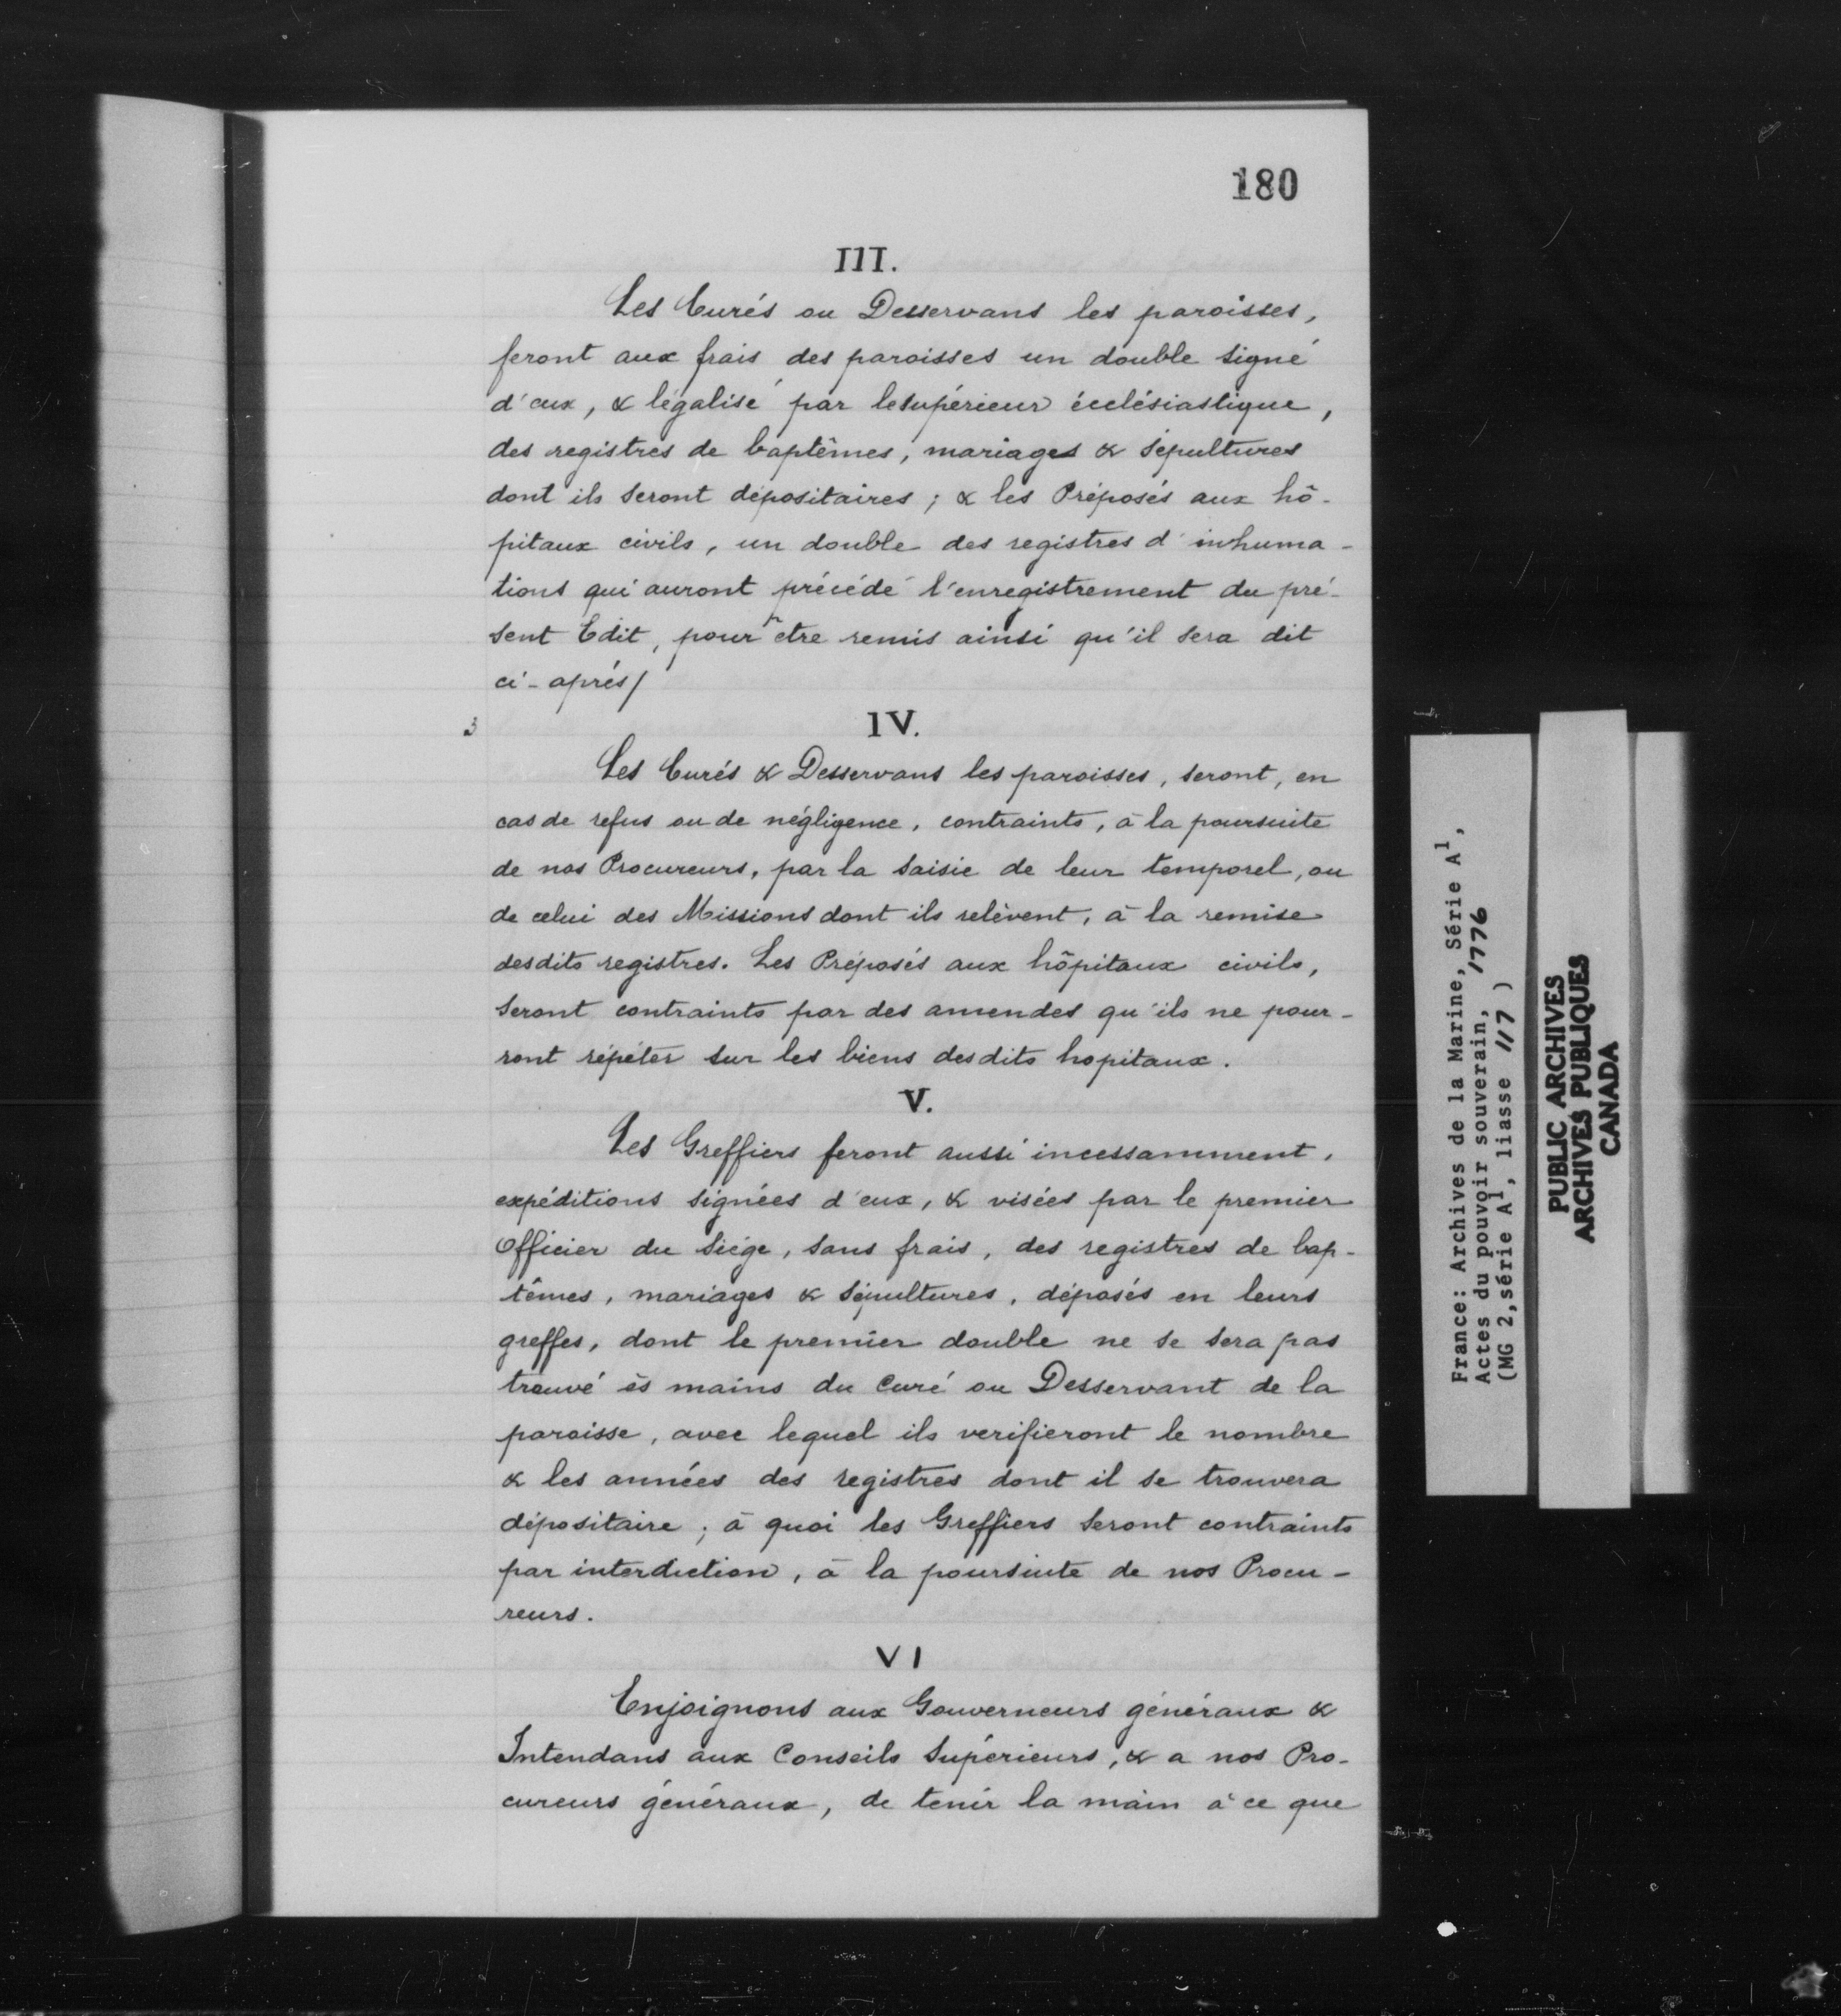 180
III.
Les Curés ou Desservans les paroisses,
feront aux frais des paroisses un double signé
d'eux, & légalisé par le supérieur écclésiastique,
des registres de baptêmes, mariages & sépultures
dont ils seront dépositaires; & les Préposés aux hô-
pitaux civils, un double des registres d'inhuma-
tions qui auront précédé l'enregistrement du pré-
sent Edit, pour être remis ainsi qu'il sera dit
ci-après/
3
IV.
Les Curés & Desservans les paroisses, seront, en
cas de refus ou de négligence, contraints, à la poursuite
de nos Procureurs, par la saisie de leur temporel, ou
de celui des Missions dont ils relèvent, à la remise
desdits registres. Les Préposés aux hôpitaux civils,
seront contraints par des amendes qu'ils ne pour-
ront répéter sur les biens desdits hopitaux.
V.
Les Greffiers feront aussi incessamment,
expéditions signées d'eux, & visées par le premier
Officier du siége, sans frais, des registres de bap-
têmes, mariages & sépultures, déposés en leurs
greffes, dont le premier double ne se sera pas
trouvé ès mains du Curé ou Desservant de la
paroisse, avec lequel ils verifieront le nombre
& les années des registres dont il se trouvera
dépositaire; à quoi les Greffiers seront contraints
par interdiction, à la poursuite de nos Procu-
reurs.
VI
Enjoignons aux Gouverneurs généraux &
Intendans aux Conseils Supérieurs, & a nos Pro-
cureurs généraux, de tenir la main à ce que
France: Archives de la Marine, Série A1,
Actes du pouvoir souverain, 1776
(MG 2, série A1, liasse 117)
PUBLIC ARCHIVES
ARCHIVES PUBLIQUES
CANADA